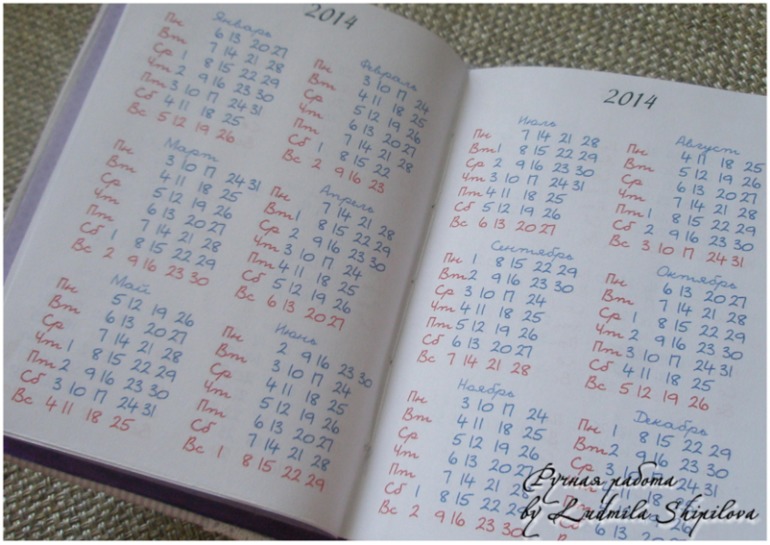 2014
Январь
Пн 6 13 20 27
Вт 7 14 21 28
Ср 1 8 15 22 29
Чт 2 9 16 23 30
Пт 3 10 17 24 31
Сб 4 11 18 25
Вс 5 12 19 26
Февраль
Пн 3 10 17 24
Вт 4 11 18 25
Ср 5 12 19 26
Чт 6 13 20 27
Пт 7 14 21 28
Сб 1 8 15 22
Вс 2 9 16 23
Март
Пн 3 10 17 24 31
Вт 4 11 18 25
Ср 5 12 19 26
Чт 6 13 20 27
Пт 7 14 21 28
Сб 1 8 15 22 29
Вс 2 9 16 23 30
Апрель
Пн 7 14 21 28
Вт 1 8 15 22 29
Ср 2 9 16 23 30
Чт 3 10 17 24
Пт 4 11 18 25
Сб 5 12 19 26
Вс 6 13 20 27
Май
Пн 5 12 19 26
Вт 6 13 20 27
Ср 7 14 21 28
Чт 1 8 15 22 29
Пт 2 9 16 23 30
Сб 3 10 17 24 31
Вс 4 11 18 25
Июнь
Пн 2 9 16 23 30
Вт 3 10 17 24
Ср 4 11 18 25
Чт 5 12 19 26
Пт 6 13 20 27
Сб 7 14 21 28
Вс 1 8 15 22 29
2014
Июль
Пн 7 14 21 28
Вт 1 8 15 22 29
Ср 2 9 16 23 30
Чт 3 10 17 24 31
Пт 4 11 18 25
Сб 5 12 19 26
Вс 6 13 20 27
Август
Пн 4 11 18 25
Вт 5 12 19 26
Ср 6 13 20 27
Чт 7 14 21 28
Пт 1 8 15 22 29
Сб 2 9 16 23 30
Вс 3 10 17 24 31
Сентябрь
Пн 1 8 15 22 29
Вт 2 9 16 23 30
Ср 3 10 17 24
Чт 4 11 18 25
Пт 5 12 19 26
Сб 6 13 20 27
Вс 7 14 21 28
Октябрь
Пн 6 13 20 27
Вт 7 14 21 28
Ср 1 8 15 22 29
Чт 2 9 16 23 30
Пт 3 10 17 24 31
Сб 4 11 18 25
Вс 5 12 19 26
Ноябрь
Пн 3 10 17 24
Вт 4 11 18 25
Ср 5 12 19 26
Чт 6 13 20 27
Пт 7 14 21 28
Сб 1 8 15 22 29
Вс 2 9 16 23 30
Декабрь
Пн 1 8 15 22 29
Вт 2 9 16 23 30
Ср 3
Ручная работа
by Ludmila Shipilova